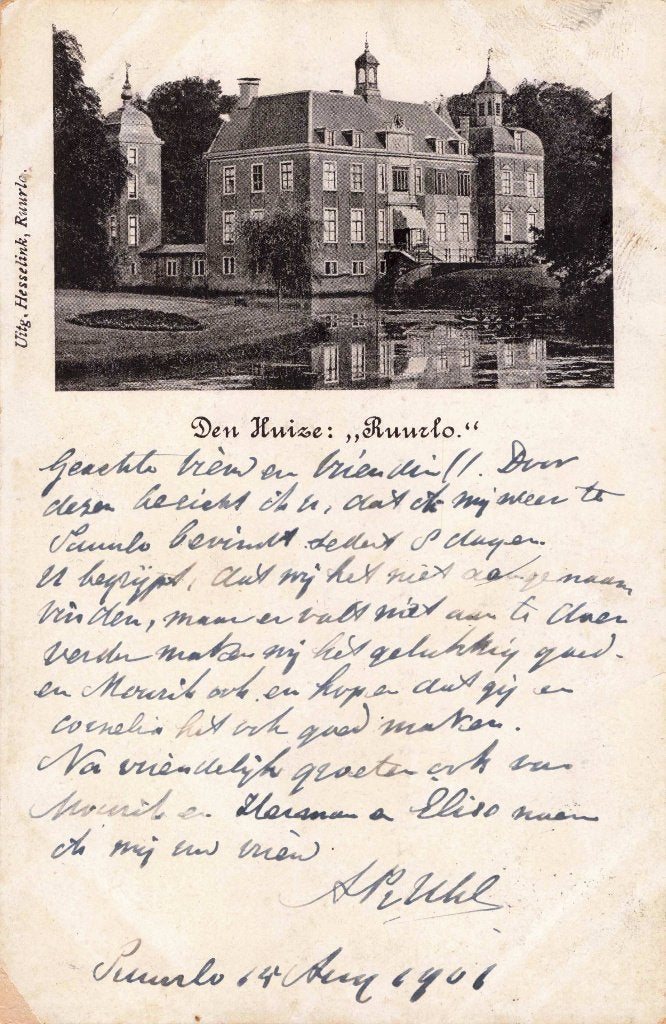 Uitg. Hesselink, Ruurlo.
Den Huize: „Ruurlo.“
Geachte Vriend en Vriendin!! Door
dezen bericht ik u, dat ik mij weer te
Ruurlo bevindt sedert 8 dagen.
U begrijpt, dat wij het niet aangenaam
vinden, maar er valt niet aan te doen
verder maken wij het gelukkig goed
en Mourik ook en hopen dat gij en
Cornelia het ook goed maken.
Na vriendelijk groeten ook van
Mourik en Herman en Eliso noem
ik mij uw vriend
Ruurlo 15 Aug 1901